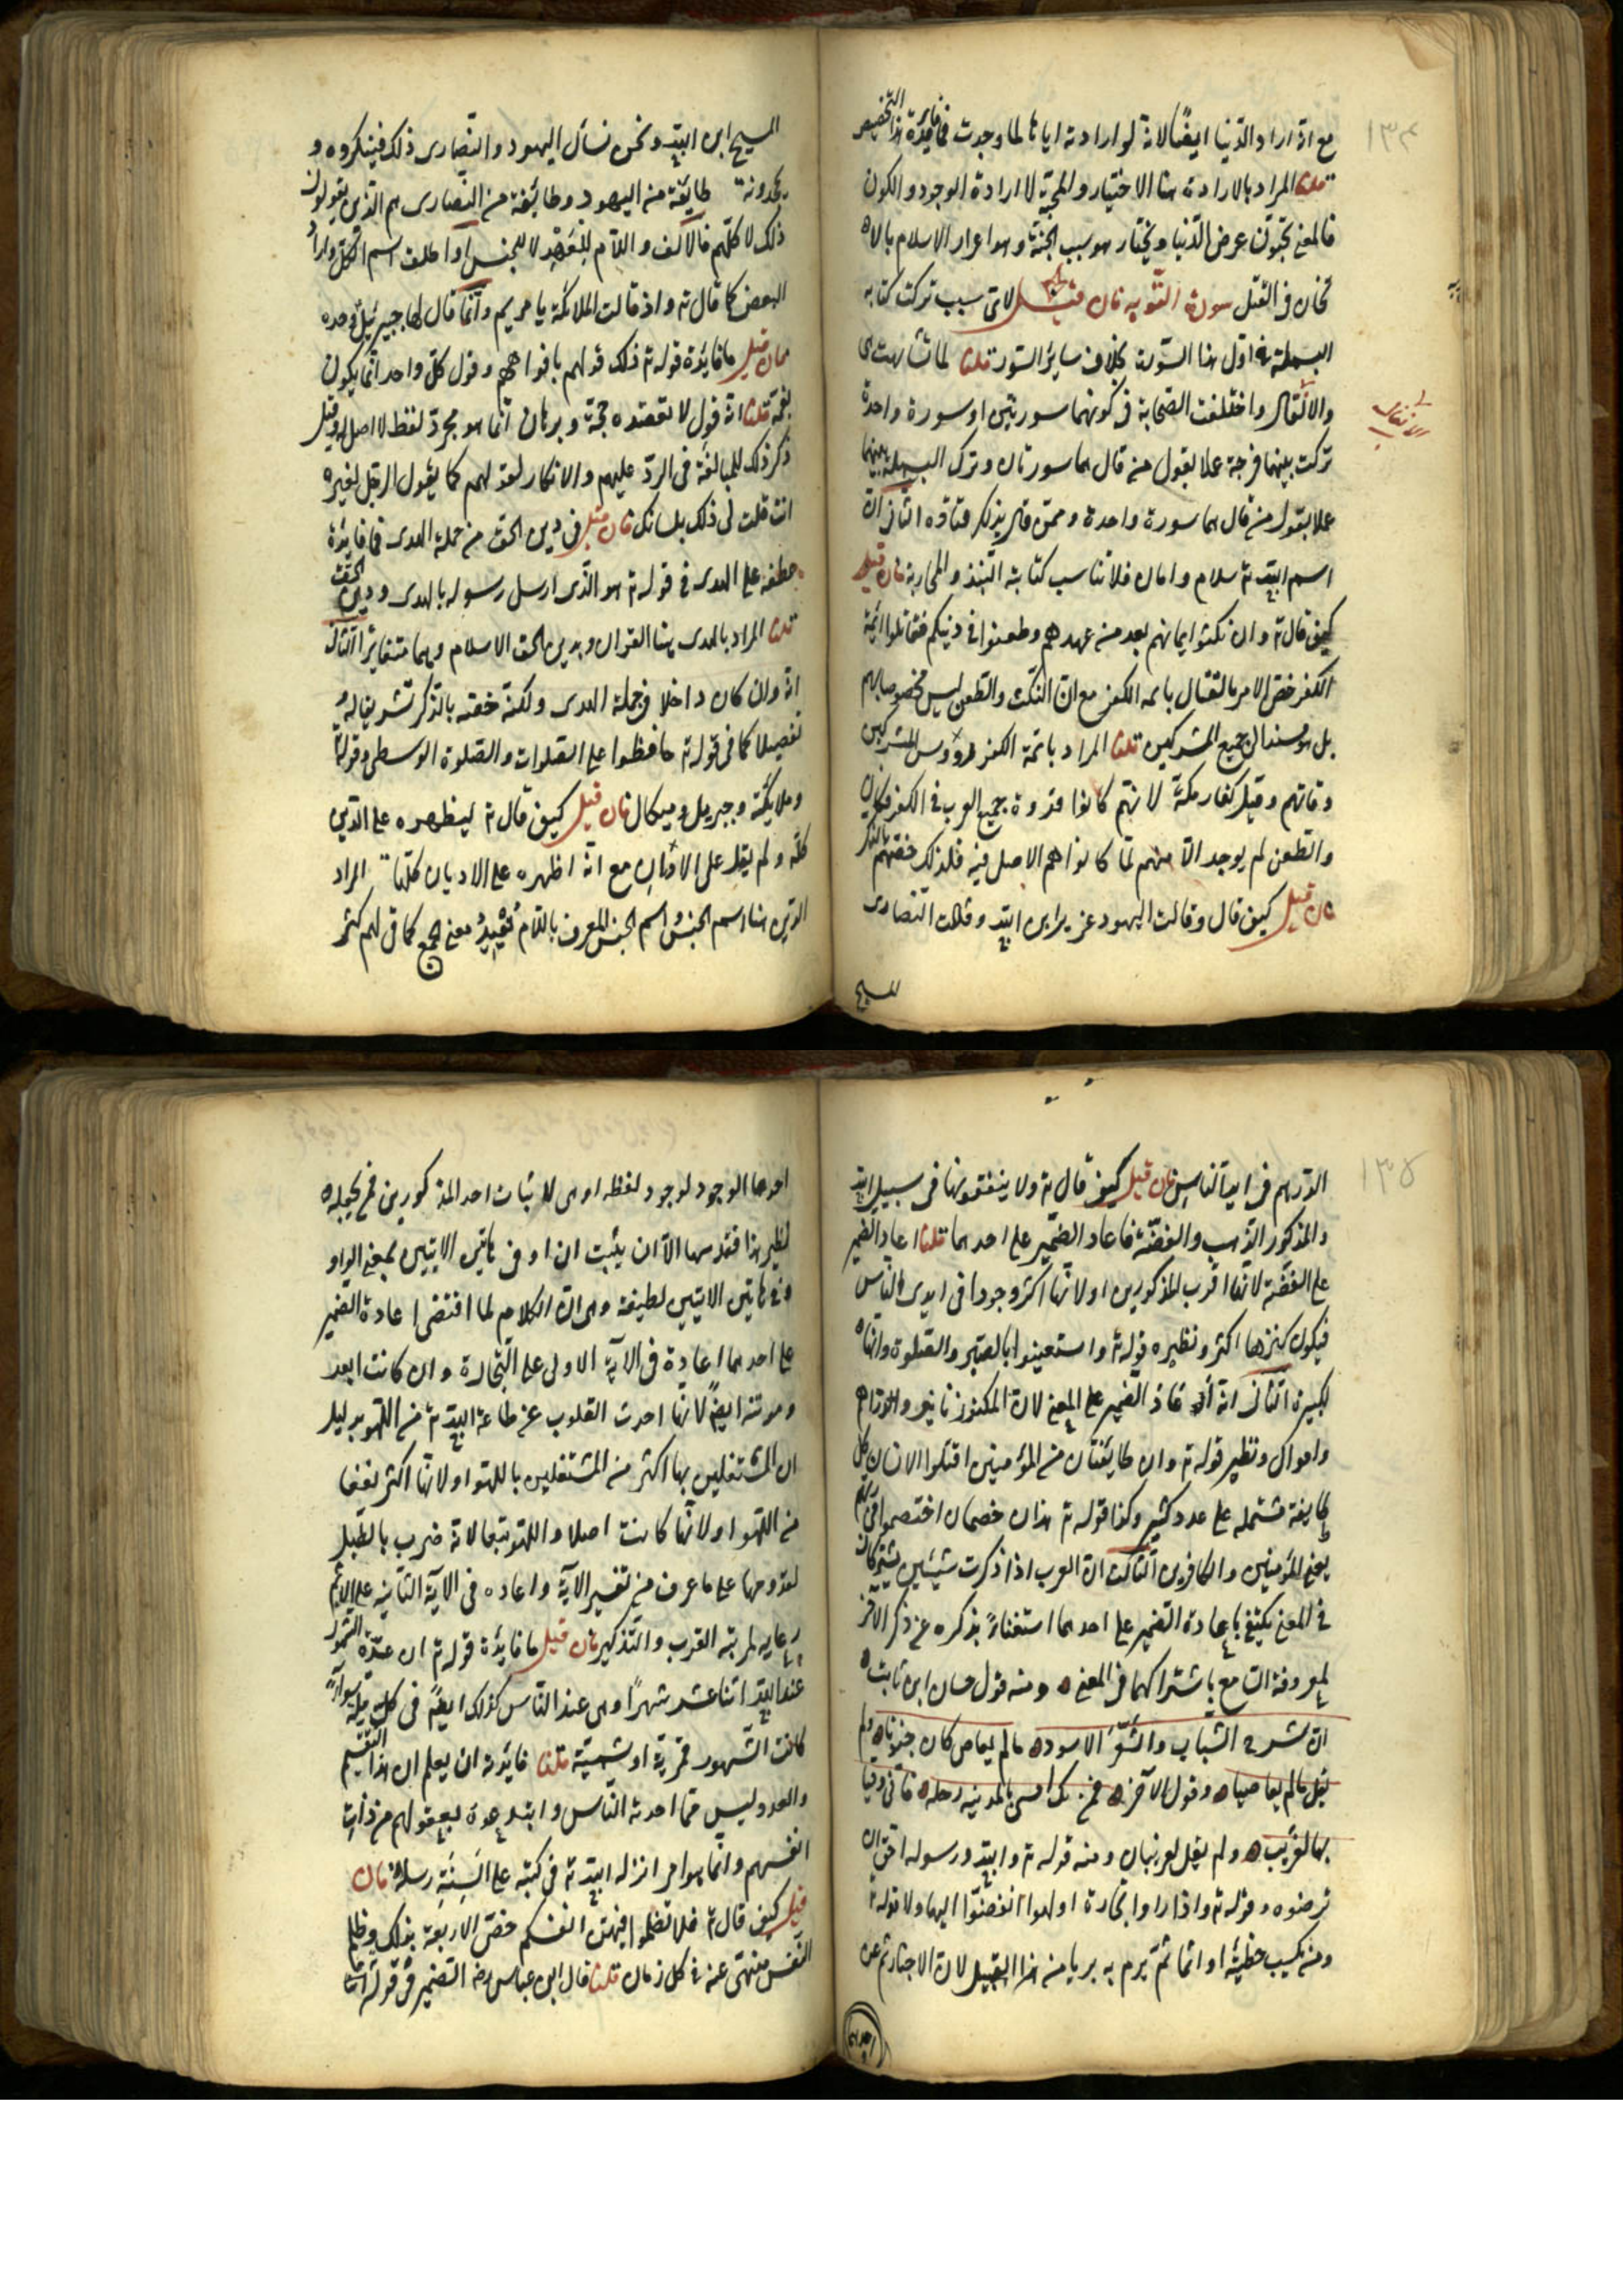 ١٣٤
مع انه اراد الدنيا ايضًا لانه لو ارادته اياها لما وجدت فما فايدة هذا التخصيص
قلنا المراد بالارادة هنا الاختيار والمحبة لا ارادة الوجود والكون
فالمعنى تحبون عرض الدنيا ويختار هو سبب الجنة وهو اعزاز الاسلام بالا
ثخان فى القتل سورة التوبه فان قيل لاى سبب تركت كتابة
البسملة فى اول هذا السورة بخلاف ساير السور قلنا لما تشابهت هى
والانفال واختلفت الصحابة فى كونهما سورتين او سورة واحدة
الانفال
تركت بينهما فرجة عملا بقول من قال هما سورتان وترك البسملة بينهما
عملا بقول من قال هما سورة واحدة وممن قال بذلك قتاده الثانى ان
اسم الله تع سلام وامان فلا تناسب كتابته النبذ والمحاربة فان قيل
كيف قال تع وان نكثوا ايمانهم بعد من عهدهم وطعنوا فى دينكم فقاتلوا ائمة
الكفر خص الامر بالقتال بائمه الكفر مع ان النكث والطعن ليس مخصوصا بهم
بل هو مسند الى جميع المشركين قلنا المراد بائمة الكفر رؤوس المشركين
وقادتهم وقيل كفار مكة لانهم كانوا قدوة جميع العرب فى الكفر فكان
والطعن لم يوجد الا منهم لما كانوا هم الاصل فيه فلذلك خصهم بالذكر
فان قيل كيف قال وقالت اليهود عزير ابن الله وقالت النصارى
المسيح
المسيح ابن الله ونحن نسأل اليهود والنصارى ذلك فينكروه و
يجحدونه طايفة من اليهود وطائفة من النصارى هم الذى يقولون
ذلك لا كلهم فالالف واللام للعهد لا للجنس او اطلق اسم الكل واراد
البعض كما قال تع واذ قالت الملائكة يا مريم وانما قال لها جبرئيل وحده
فان قيل ما فايدة قوله تع ذلك قولهم بافواههم وقول كل واحد انما يكون
بفمه قلنا انه قول لا تعضده حجة وبرهان انما هو مجرد لفظ لا اصل له وقيل
ذكر ذلك للمبالغة فى الرد عليهم والانكار لقولهم كما يقول الرجل لغيره
انت قلت لى ذلك بلسانك فان قيل فى دين الحق من جملة الهدى فما فايدة
عطفه على الهدى فى قوله تع هو الذى ارسل رسوله بالهدى ودين الحق
قلنا المراد بالهدى هنا القران وبدين الحق الاسلام وهما متغايران الثانى
انه وان كان داخلا فى جملة الهدى ولكنه خصه بالذكر تشريفا له
تفضيلا كما فى قوله تع حافظوا على الصلوات والصلوة الوسطى وقوله تع
وملائكته وجبريل وميكال فان قيل كيف قال تع ليظهره على الدين
كله ولم يقل على الاديان مع انه اظهره على الاديان كلها قلنا المراد
الدين هنا اسم الجنس واسم الجنس المعرف باللام يفيد معنى الجمع كما فى لهم كثر
١٣٥
الدرهم فى ايد الناس فان قيل كيف قال تع ولا ينفقونها فى سبيل الله
والمذكور الذهب والفضة فاعاد الضمير على احدهما قلنا اعاد الضمير
على الفضة لانها اقرب المذكورين او لانها اكثر وجودا فى ايدى الناس
فيكون كنزها اكثر ونظيره قوله تع واستعينوا بالصبر والصلوة وانها
لكبيرة الثانى انه اعاد الضمير على المعنى لان المكنوز دنانير ودراهم
واموال ونظير قوله تع وان طايفتان من المؤمنين اقتتلوا لان كل
طايفة مشتمله على عدد كثير وكذا قوله تع هذان خصمان اختصموا فى ربهم
يعنى المؤمنين والكافرين الثالث ان العرب اذا ذكرت شيئين يشتركان
فى المعنى يكتفى باعادة الضمير على احدهما استغناءً بذكره عن ذكر الاخر
لمعرفة السامع باشتراكهما فى المعنى ومنه قول حسان ابن ثابت
ان شرخ الشباب والشعر الاسود ما لم يعاص كان جنونا ولم
يقل ما لم يعاصياه وقول الآخر فمن يك امسى بالمدينه رحله فانى وقيا
بها لغريب ولم يقل لغريبان ومنه قوله تع والله ورسوله احق ان
يرضوه وقوله تع واذا راوا تجارة او لهوا انفضوا اليها ولا قوله تع
ومن يكسب خطيئة او اثما ثم يرم به بريا من هذا القبيل لان الاخبار ثم عن
احدهما
احدهما الوجود لوجود لفظه او هى لاثبات احد المذكورين فمن يجعله
نظير هذا فقد سها الا ان يثبت ان او فى هاتين الايتين بمعنى الواو
وفى هاتين الايتين لطيفة وهى ان الكلام لما اقتضى اعادة الضمير
على احدهما اعادة فى الآية الاولى على التجارة وان كانت ابعد
ومونثه ايضً لانها اجذب القلوب عن طاعة الله تع من اللهو بدليل
ان المشتغلين بها اكثر من المشتغلين باللهو او لانها اكثر نفعا
من اللهو او لانها كانت اصلا واللهو تبعا لانه ضرب بالطبل
لقدومها على ما عرف من تفسير الاية واعاده فى الآية الثانيه على الاثم
رعايه لمرتبة القرب والتذكير فان قيل ما فايدة قوله تع ان عدة الشهور
عند الله اثنا عشر شهرًا وهى عند الناس كذلك ايضً فى كل ملة سواءً
كانت الشهور قمرية او شمسية قلنا فايدته ان يعلم ان هذا التقسيم
والعدد ليس مما احدثه الناس وابتدعوه بعقولهم من ذات
انفسهم وانما هو امر انزله الله تع فى كتبه على السنة رسله فان
قيل كيف قال تع فلا تظلموا فيهن انفسكم خص الاربعة بذلك وظلم
النفس منهى عنه فى كل زمان قلنا قال ابن عباس رضه الضمير فى قوله تع